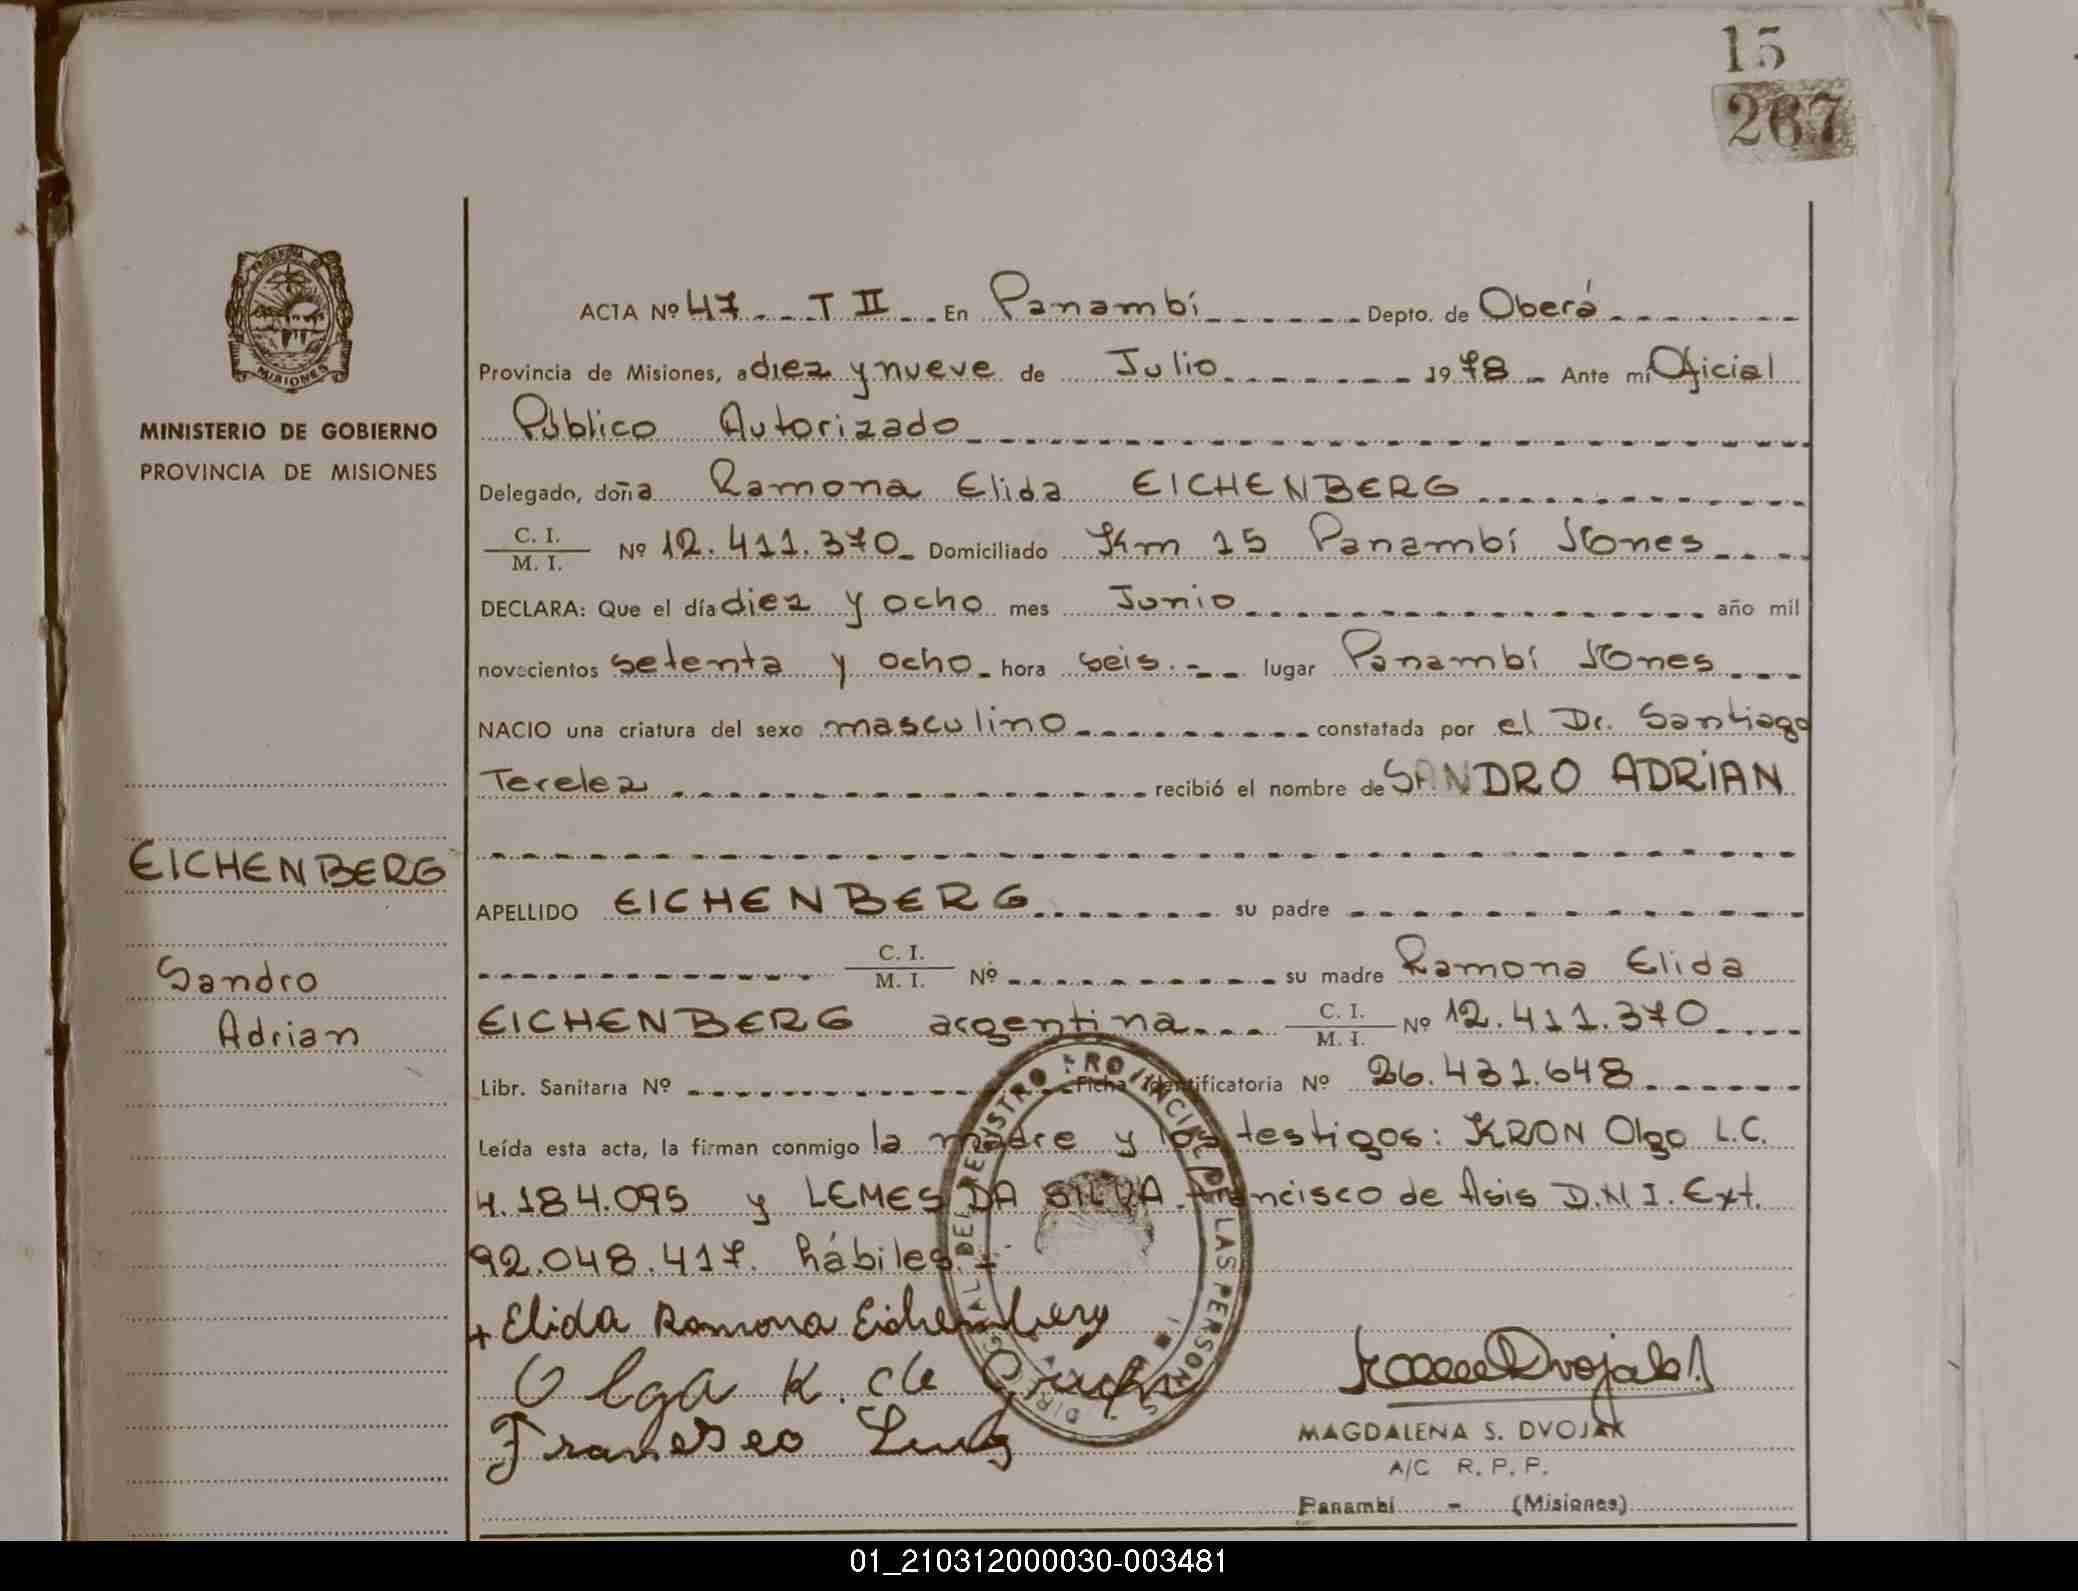 15
267
PROVINCIA DE
MISIONES
MINISTERIO DE GOBIERNO
PROVINCIA DE MISIONES
EICHENBERG
Sandro
Adrian
ACTA Nº 47 T II En Panambí Depto. de Oberá
Provincia de Misiones, a diez y nueve de Julio 1978 Ante mi Oficial
Público Autorizado
Delegado, doña Ramona Elida EICHENBERG
C. I.
M. I. Nº 12.411.370 Domiciliado Km 15 Panambí Mones
DECLARA: Que el día diez y ocho mes Junio año mil
novecientos setenta y ocho hora seis.- lugar Panambí Mones
NACIO una criatura del sexo masculino constatada por el Dr. Santiago
Terelez recibió el nombre de SANDRO ADRIAN
APELLIDO EICHENBERG su padre
C. I.
M. I. Nº su madre Ramona Elida
EICHENBERG argentina C. I.
M. I. Nº 12.411.370
Libr. Sanitaria Nº Ficha Identificatoria Nº 26.431.648
Leída esta acta, la firman conmigo la madre y los testigos: KRON Olga L.C.
4.184.095 y LEMES DA SILVA Francisco de Asis D.N.I. Ext.
92.048.417. hábiles.-
+ Elida Ramona Eichenberg
Olga K. de
Francisco
DIRECC. GRAL DEL REGISTRO PROVINCIAL DE LAS PERSONAS
Dvojak
MAGDALENA S. DVOJAK
A/C R. P. P.
Panambí - (Misiones)
01_210312000030-003481